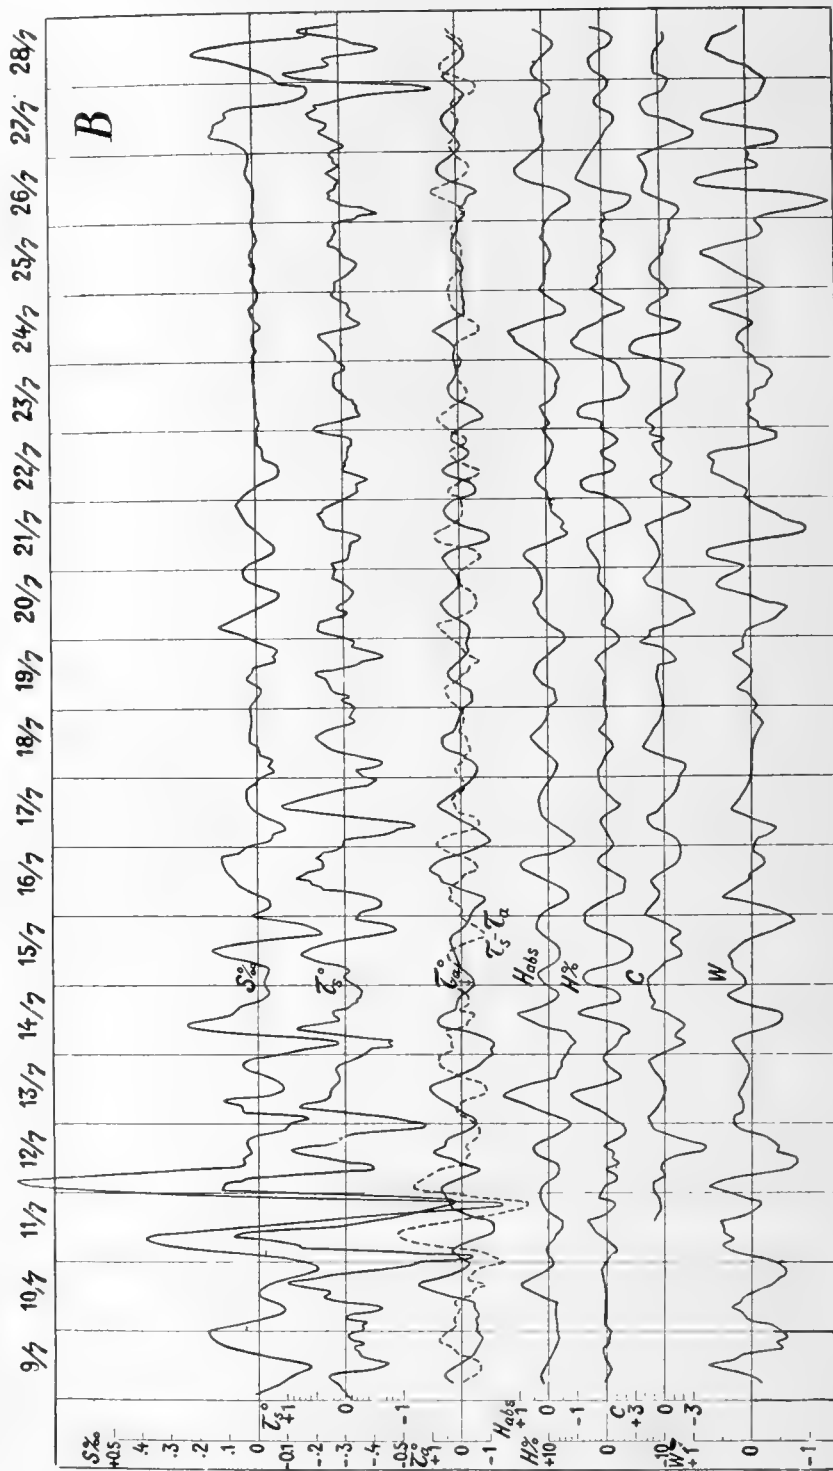 9/7 10/7 11/7 12/7 13/7 14/7 15/7 16/7 17/7 18/7 19/7 20/7 21/7 22/7 23/7 24/7 25/7 26/7 27/7 28/7
B
S‰
τs°
τa°
τs-τa
Habs
H%
C
W
S‰
+0.5
.4
.3
.2
.1
0
-0.1
-.2
-.3
-.4
-0.5
τs°
+1
0
-1
τa°
+1
0
-1
Habs
+1
0
-1
H%
+10
0
-10
C
+3
0
-3
W
+1
0
-1